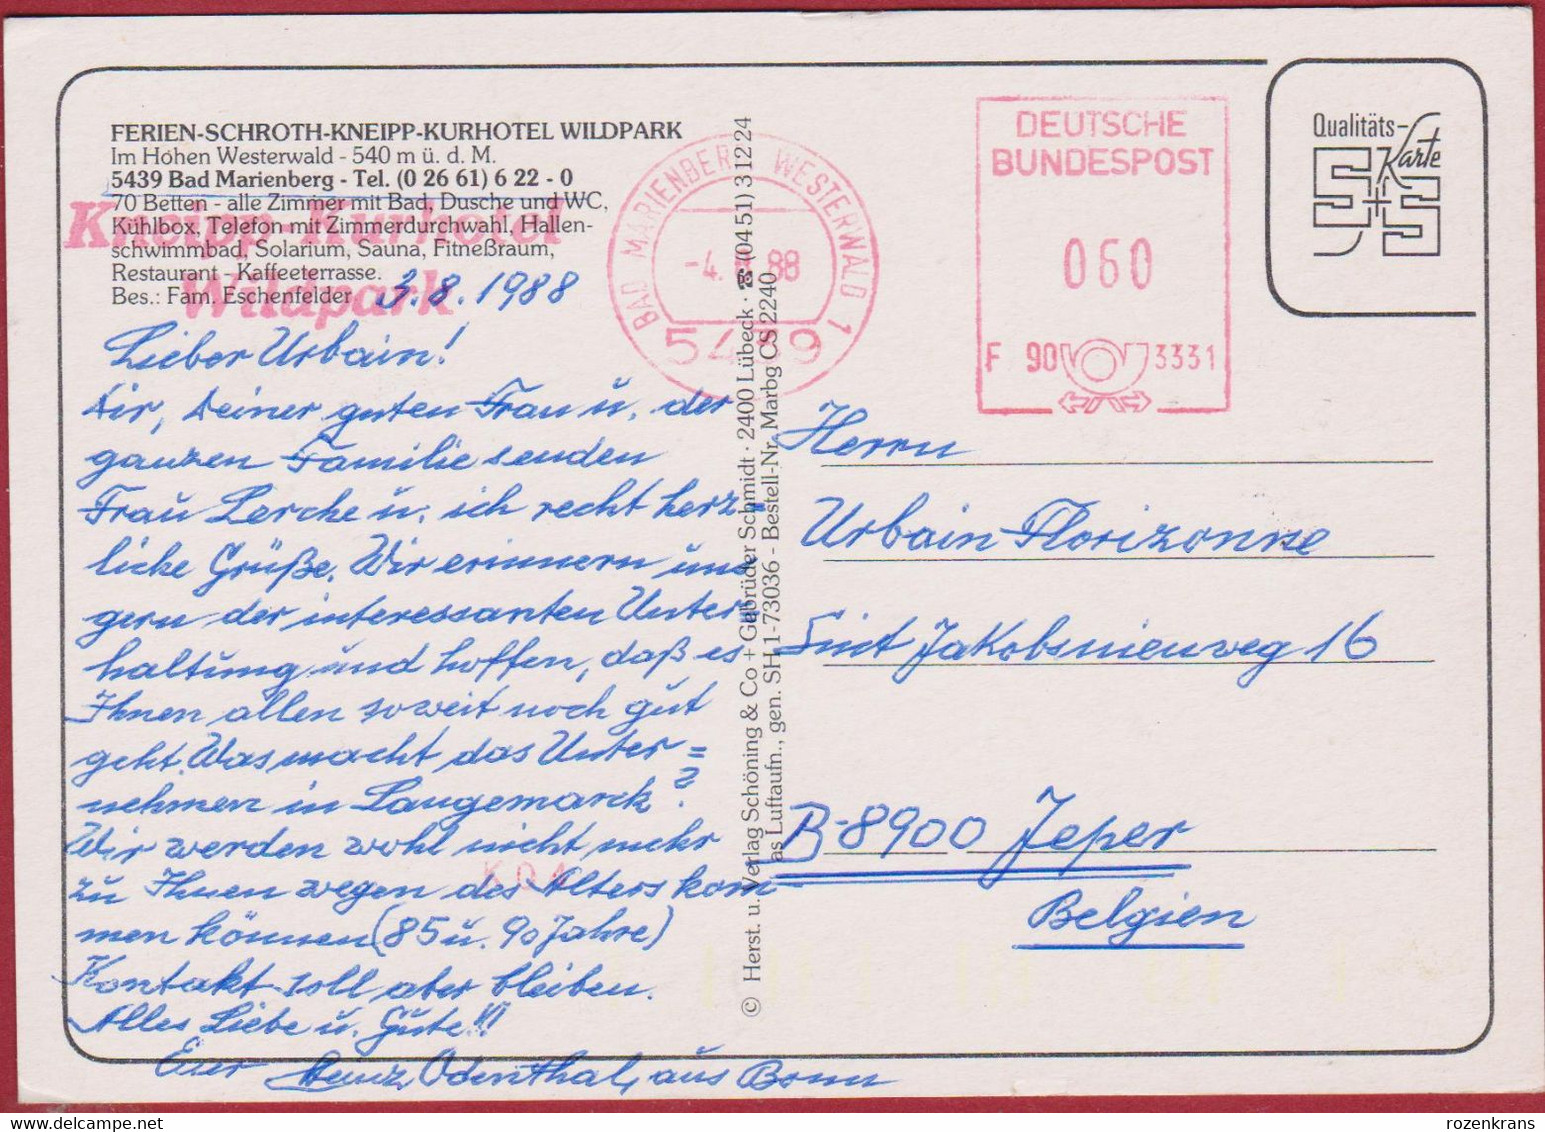 FERIEN-SCHROTH-KNEIPP-KURHOTEL WILDPARK
Im Hohen Westerwald - 540 m ü. d. M.
5439 Bad Marienberg - Tel. (0 26 61) 6 22 - 0
70 Betten - alle Zimmer mit Bad, Dusche und WC,
Kühlbox, Telefon mit Zimmerdurchwahl, Hallen-
schwimmbad, Solarium, Sauna, Fitneßraum,
Restaurant - Kaffeeterrasse.
Bes.: Fam. Eschenfelder
Kneipp-Kurhotel
Wildpark
3.8.1988
Lieber Urbain!
Dir, Deiner guten Frau u. der
ganzen Familie senden
Frau Lerche u. ich recht herz=
liche Grüße. Wir erinnern uns
gern der interessanten Unter=
haltung und hoffen, daß es
Ihnen allen soweit noch gut
geht. Was macht das Unter=
nehmen in Langemarck?
Wir werden wohl nicht mehr
zu Ihnen wegen des Alters kom-
men können (85 u. 90 Jahre)
Kontakt soll aber bleiben.
Alles Liebe u. Gute!!!
Euer Heinz Odenthal, aus Bonn
K04
BAD MARIENBERG WESTERWALD 1
-4. 88
5439
DEUTSCHE
BUNDESPOST
060
F 90 3331
Qualitäts-
Karte
S+S
© Herst. u. Verlag Schöning & Co + Gebrüder Schmidt · 2400 Lübeck · ☎ (04 51) 3 12 24
as Luftaufn., gen. SH 1-73036 - Bestell-Nr. Marbg CS 2240
Herrn
Urbain Florizonne
Sint Jakobsnieuweg 16
B-8900 Jeper
Belgien
rozenkrans